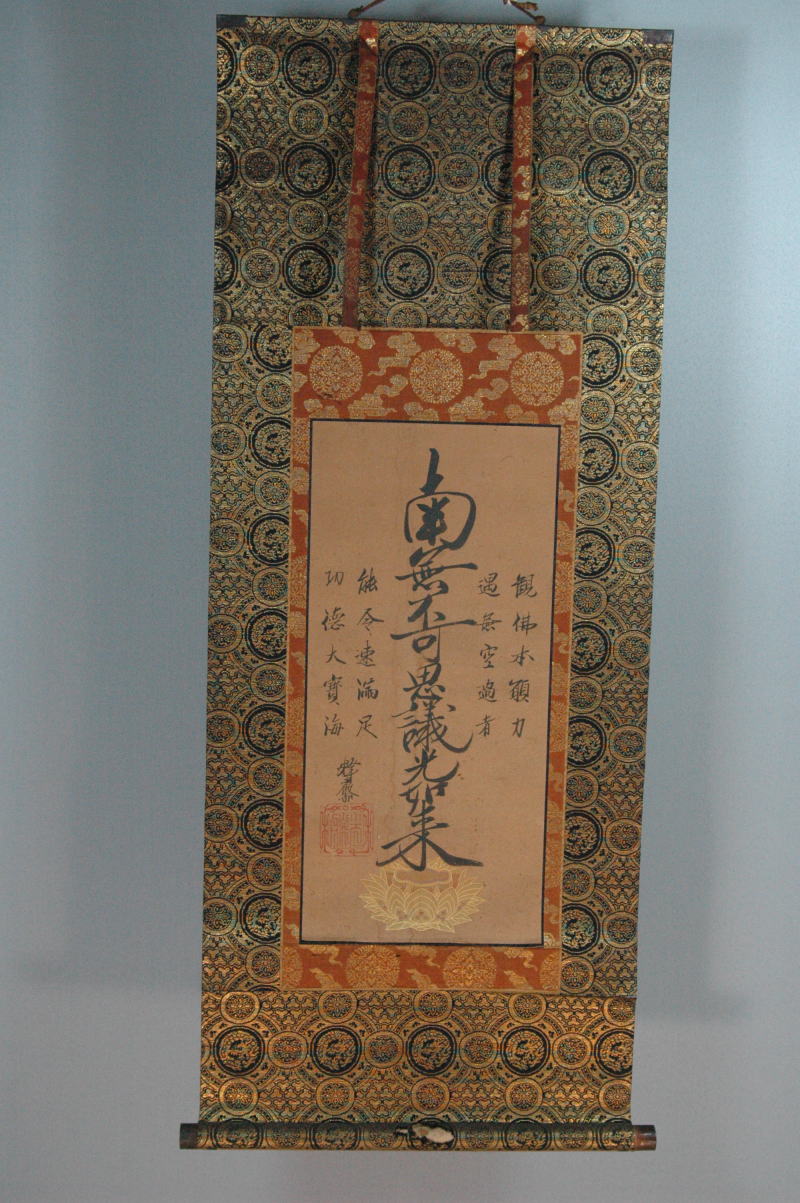 観佛本願力
遇無空過者
南無不可思議光如来
能令速満足
功德大寳海